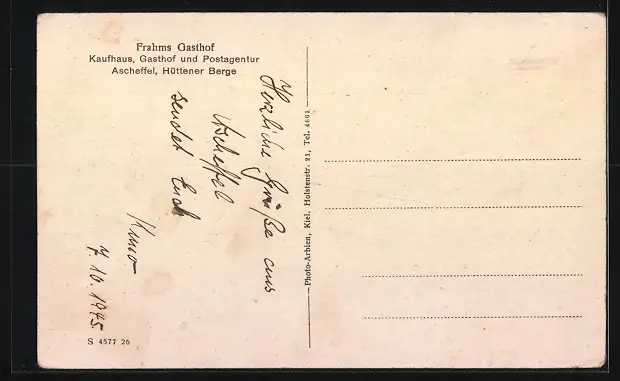 Frahms Gasthof
Kaufhaus, Gasthof und Postagentur
Ascheffel, Hüttener Berge
Herzliche Grüße aus
Ascheffel
sendet Euch
Kuno
7.10.1945.
S 4577 26
Photo-Arbien, Kiel. Holstenstr. 21, Tel. 4661